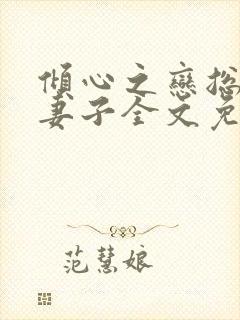 傾心之戀總
妻子全文免
范慧娘